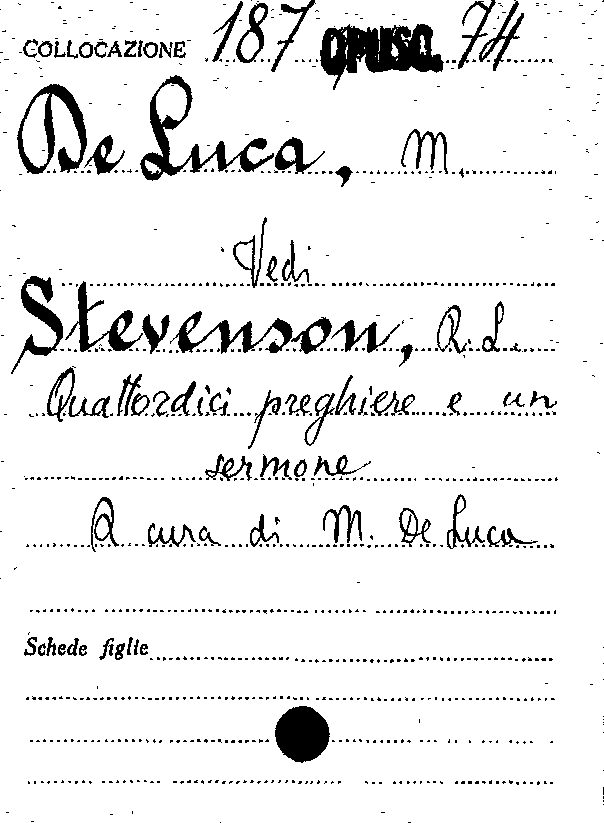 COLLOCAZIONE 187 OPUSC. 74
De Luca, M.
Vedi
Stevenson, R. L.
Quattordici preghiere e un
sermone
A cura di M. De Luca
Schede figlie